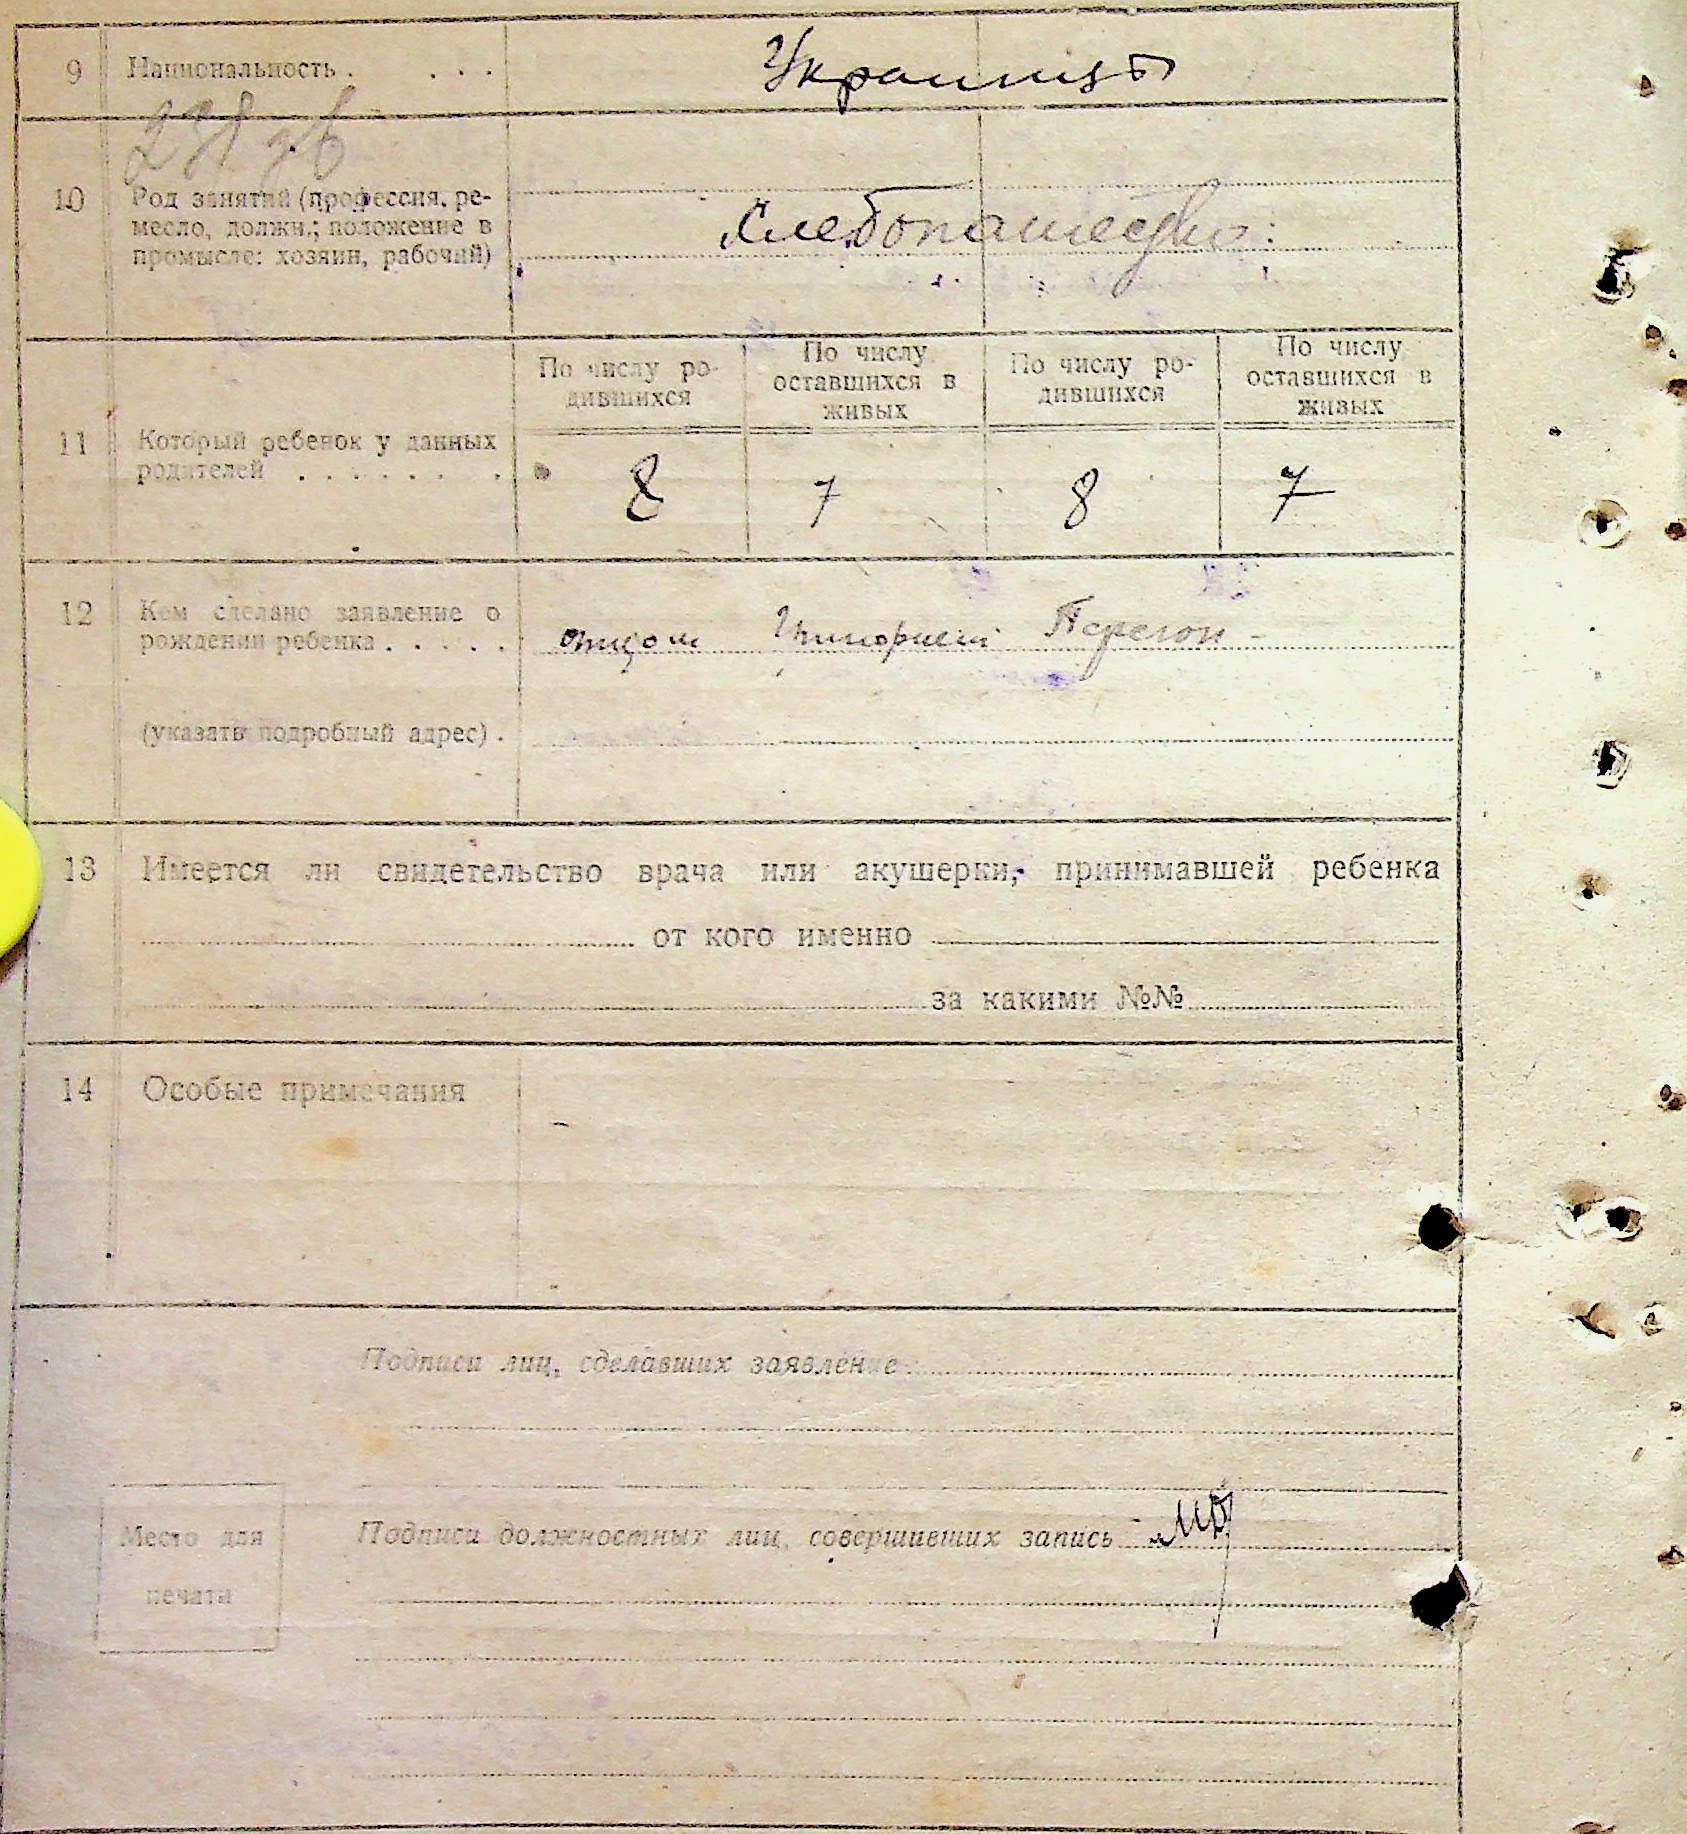 9 Национальность . . . . Украинцы
10 Род занятий (профессия, ре-
месло, должн.; положение в
промысле: хозяин, рабочий)
Хлебопашество
По числу ро-
дившихся
По числу
оставшихся в
живых
По числу ро-
дившихся
По числу
оставшихся в
живых
11 Который ребенок у данных
родителей . . . . . . .
8 7 8 7
12 Кем сделано заявление о
рождении ребенка . . . . .
отцом Григорием Перегон-
(указать подробный адрес) .
13 Имеется ли свидетельство врача или акушерки, принимавшей ребенка
от кого именно
за какими №№
14 Особые примечания
Подписи лиц, сделавших заявление
Подписи должностных лиц, совершивших запись
Место для
печати